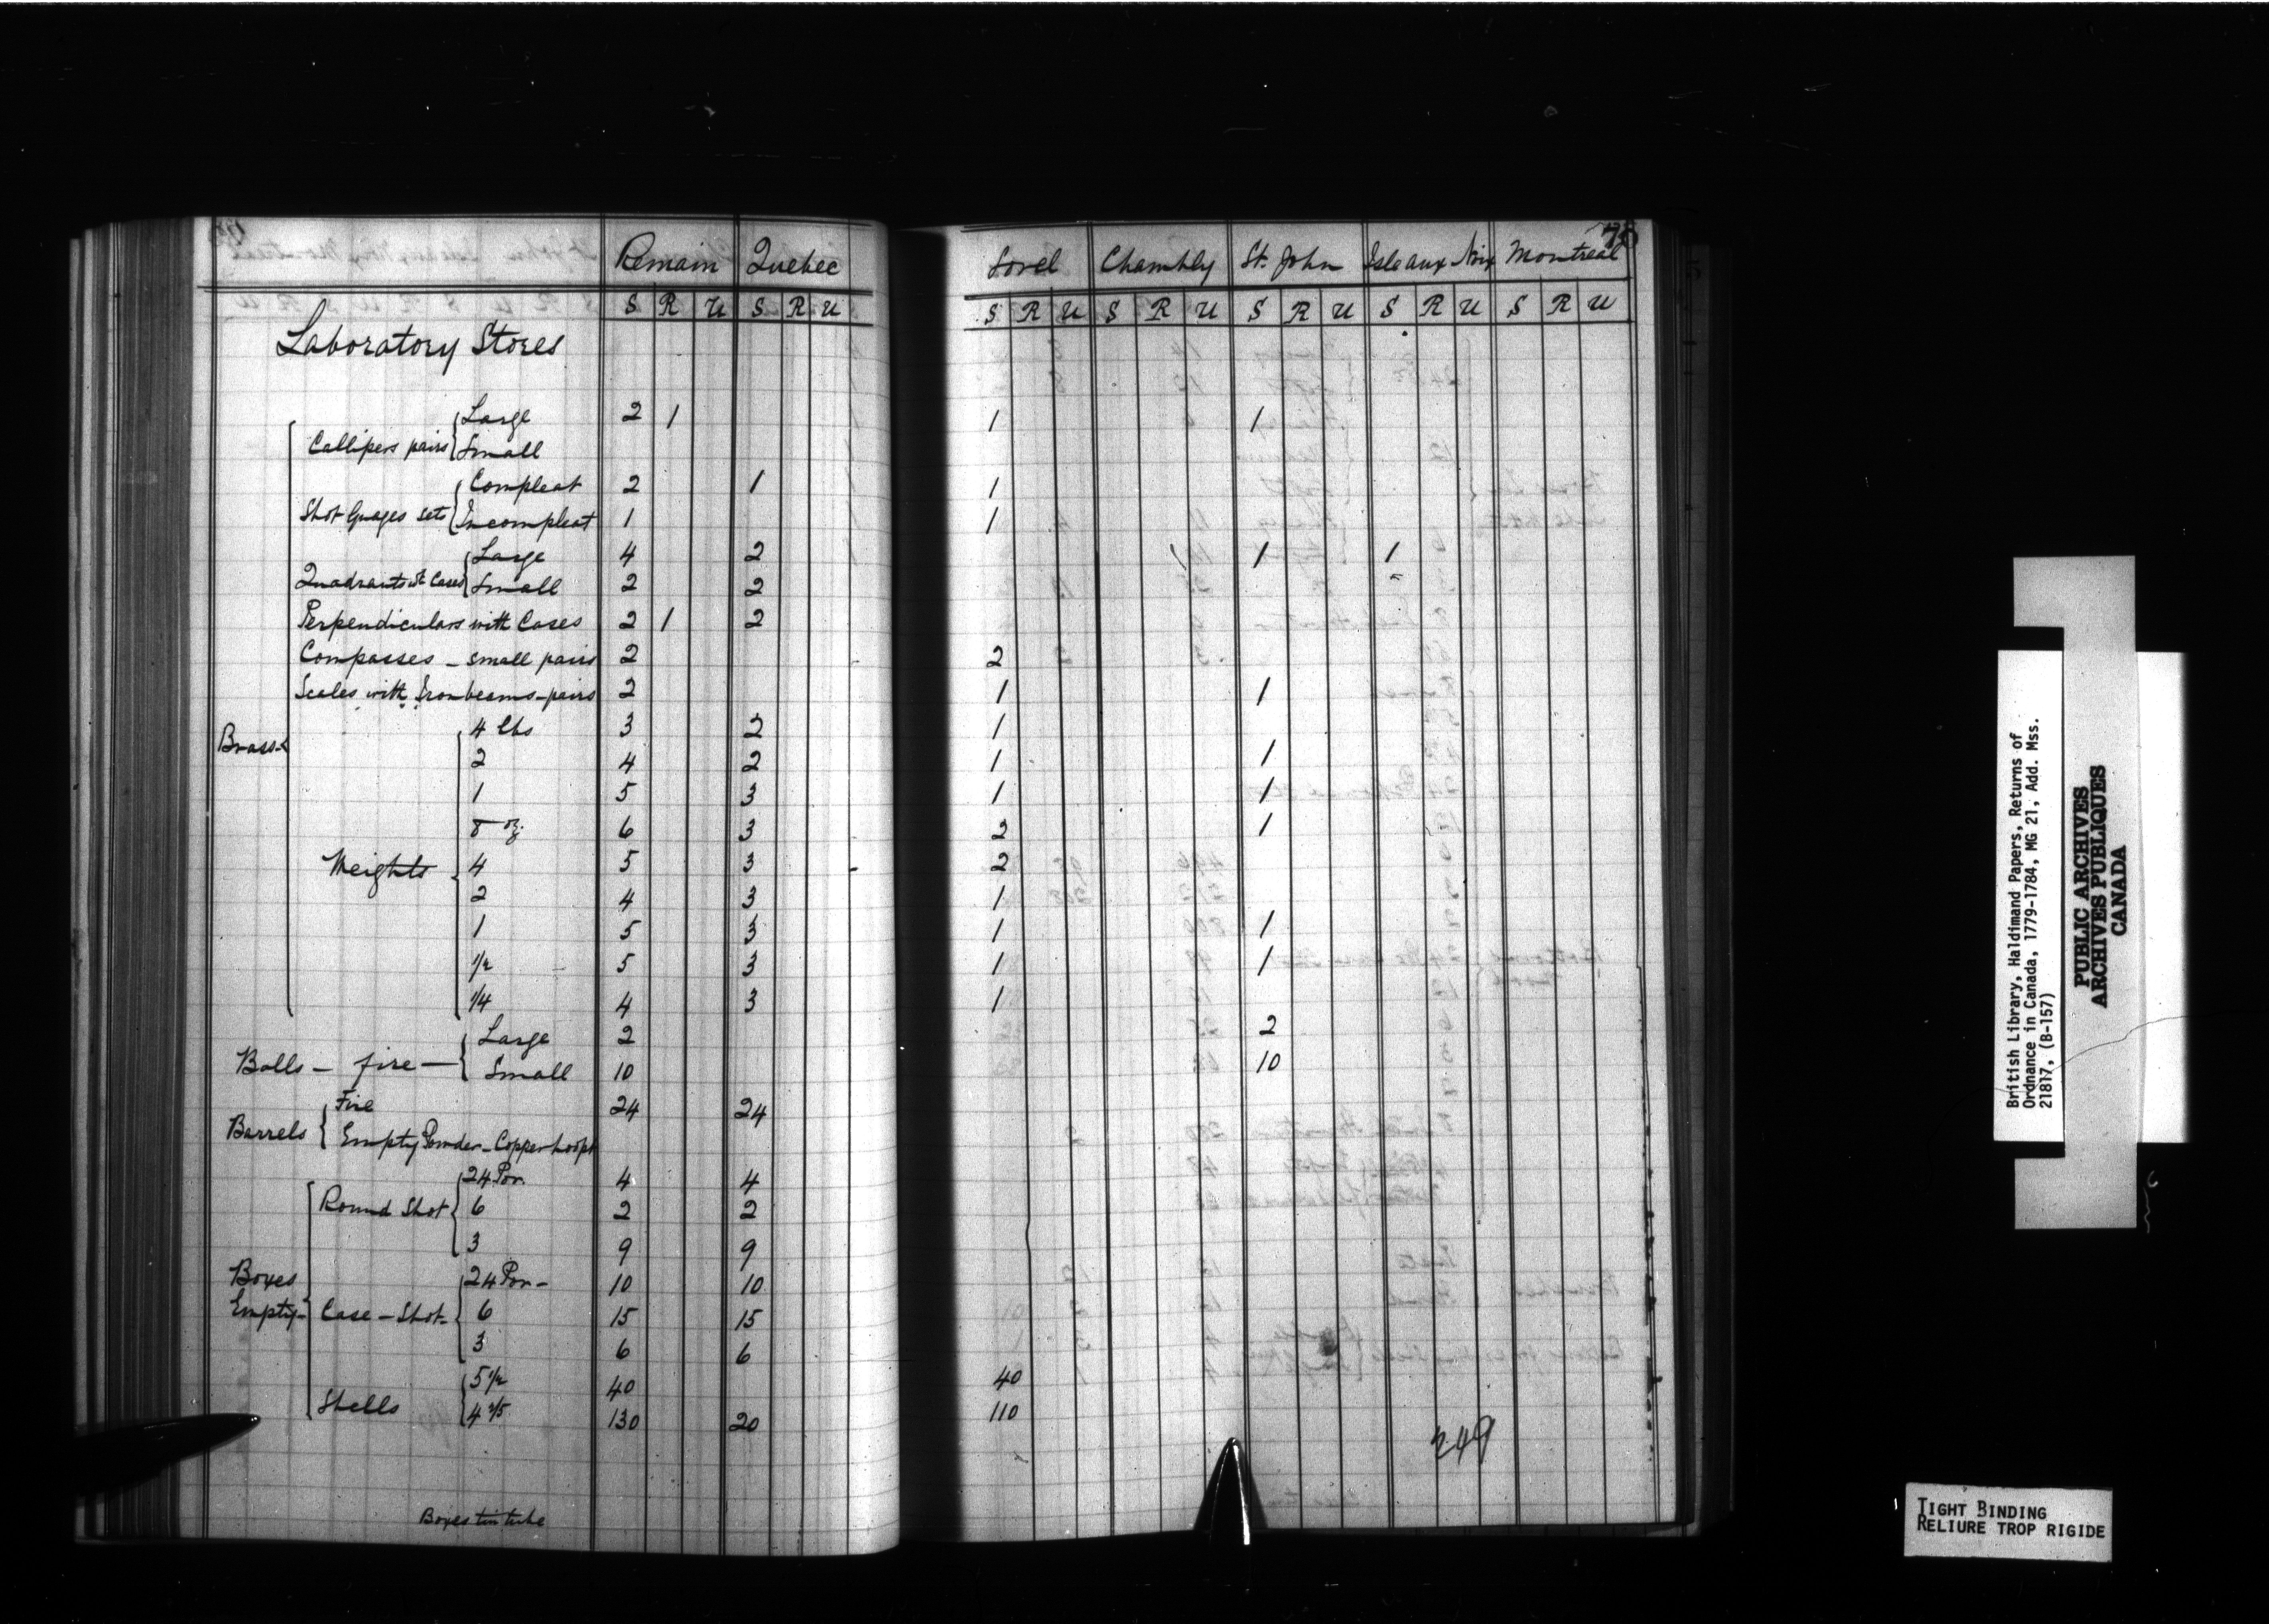 Remain Quebec Sorel Chambly St. John Isle aux Noix Montreal 78
S R U S R U S R U S R U S R U S R U S R U
Laboratory Stores
Brass
Callipers pairs { Large 2 1 1 1
Small
Shot Guages sets { Compleat 2 1 1
Incompleat 1 1
Quadrants wt Cases { Large 4 2 1 1
Small 2 2
Perpendiculars with Cases 2 1 2
Compasses - small pairs 2 2
Scales with Iron beams - pairs 2 1 1
Weights { 4 lbs 3 2 1
2 4 2 1 1
1 5 3 1 1
8 oz. 6 3 2 1
4 5 3 2
2 4 3 1
1 5 3 1 1
1/2 5 3 1 1
1/4 4 3 1
Balls - fire - { Large 2 2
Small 10 10
Barrels { Fire 24 24
Empty Powder - Copper hoops
Boxes Empty -
Round Shot { 24 Por. 4 4
6 2 2
3 9 9
Case - Shot - { 24 Por - 10 10
6 15 15
3 6 6
Shells { 5 1/2 40 40
4 2/5 130 20 110
249
Boxes tin tube
British Library, Haldimand Papers, Returns of
Ordnance in Canada, 1779-1784, MG 21, Add. Mss.
21817, (B-157)
PUBLIC ARCHIVES
ARCHIVES PUBLIQUES
CANADA
TIGHT BINDING
RELIURE TROP RIGIDE